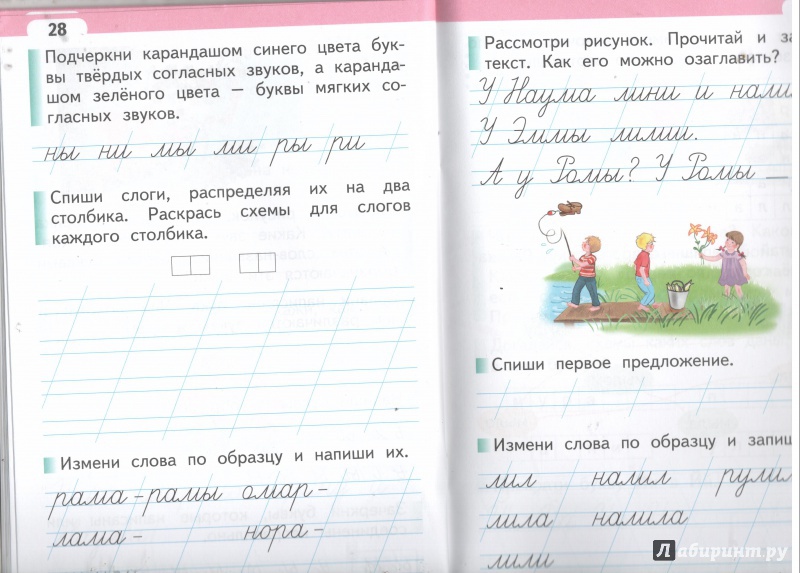 28
Подчеркни карандашом синего цвета бук-
вы твёрдых согласных звуков, а каранда-
шом зелёного цвета — буквы мягких со-
гласных звуков.
ны ни мы ми ры ри
Спиши слоги, распределяя их на два
столбика. Раскрась схемы для слогов
каждого столбика.
Измени слова по образцу и напиши их.
рама – рамы омар –
лама – нора –
Рассмотри рисунок. Прочитай и
текст. Как его можно озаглавить?
У Наума лини и
У Эммы лилии.
А у Ромы? У Ромы
Спиши первое предложение.
Измени слова по образцу и
лил налил рулил
лила налила
лили
Лабиринт.ру